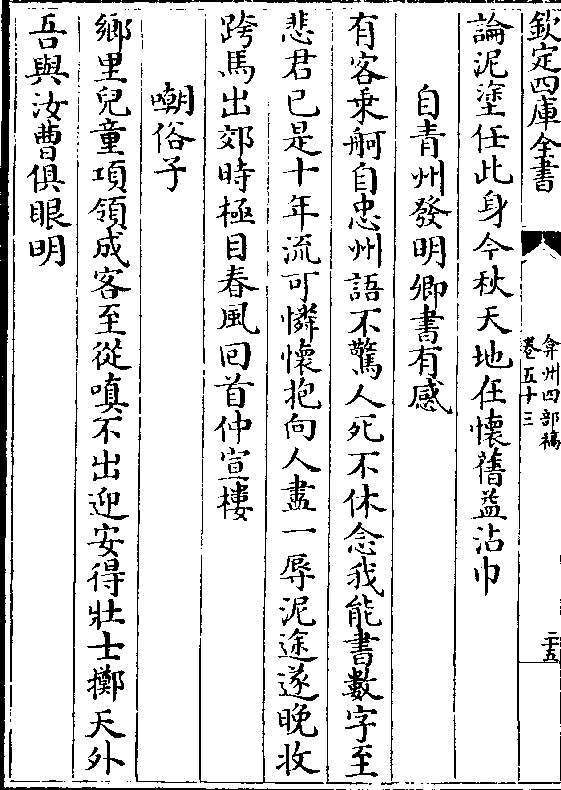 欽定四庫全書
弇州四部稿
卷五十三
二十五
論泥塗任此身今秋天地在懷舊益沾巾
自青州發明卿書有感
有客乗舸自忠州語不驚人死不休念我能書數字至
悲君已是十年流可憐懷抱向人盡一辱泥途遂晚收
跨馬出郊時極目春風回首仲宣樓
嘲俗子
鄉里兒童項領成客至從嗔不出迎安得壯士擲天外
吾與汝曹俱眼明